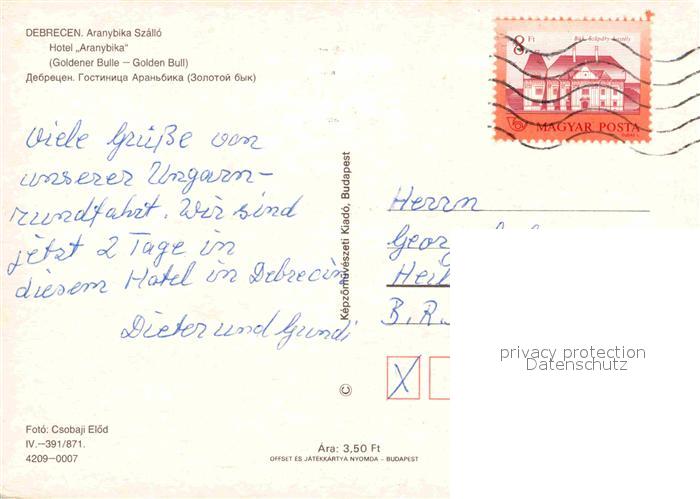 DEBRECEN. Aranybika Szálló
Hotel „Aranybika"
(Goldener Bulle — Golden Bull)
Дебрецен. Гостиница Араньбика (Золотой бык)
8 Ft
MAGYAR POSTA
Viele Grüße von
unserer Ungarn-
rundfahrt. Wir sind
jetzt 2 Tage in
diesem Hotel in Debrecin
Dieter und Gundi
Képzőművészeti Kiadó, Budapest
©
Herrn
Georg
B.R.
X
privacy protection
Datenschutz
Fotó: Csobaji Előd
IV.—391/871.
4209—0007
Ára: 3,50 Ft
OFFSET ÉS JÁTÉKKÁRTYA NYOMDA – BUDAPEST